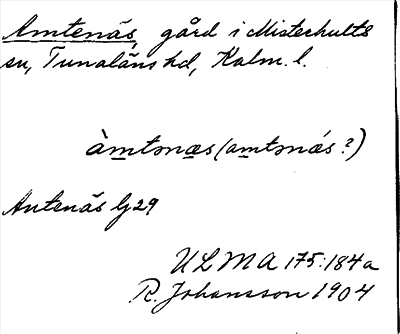 Amtenäs, gård i Misterhults
sn, Tunaläns hd, Kalm. l.
àmtənæs (amtənǽs?)
Antenäs Gj 29
ULMA 175:184a
R. Johansson 1904